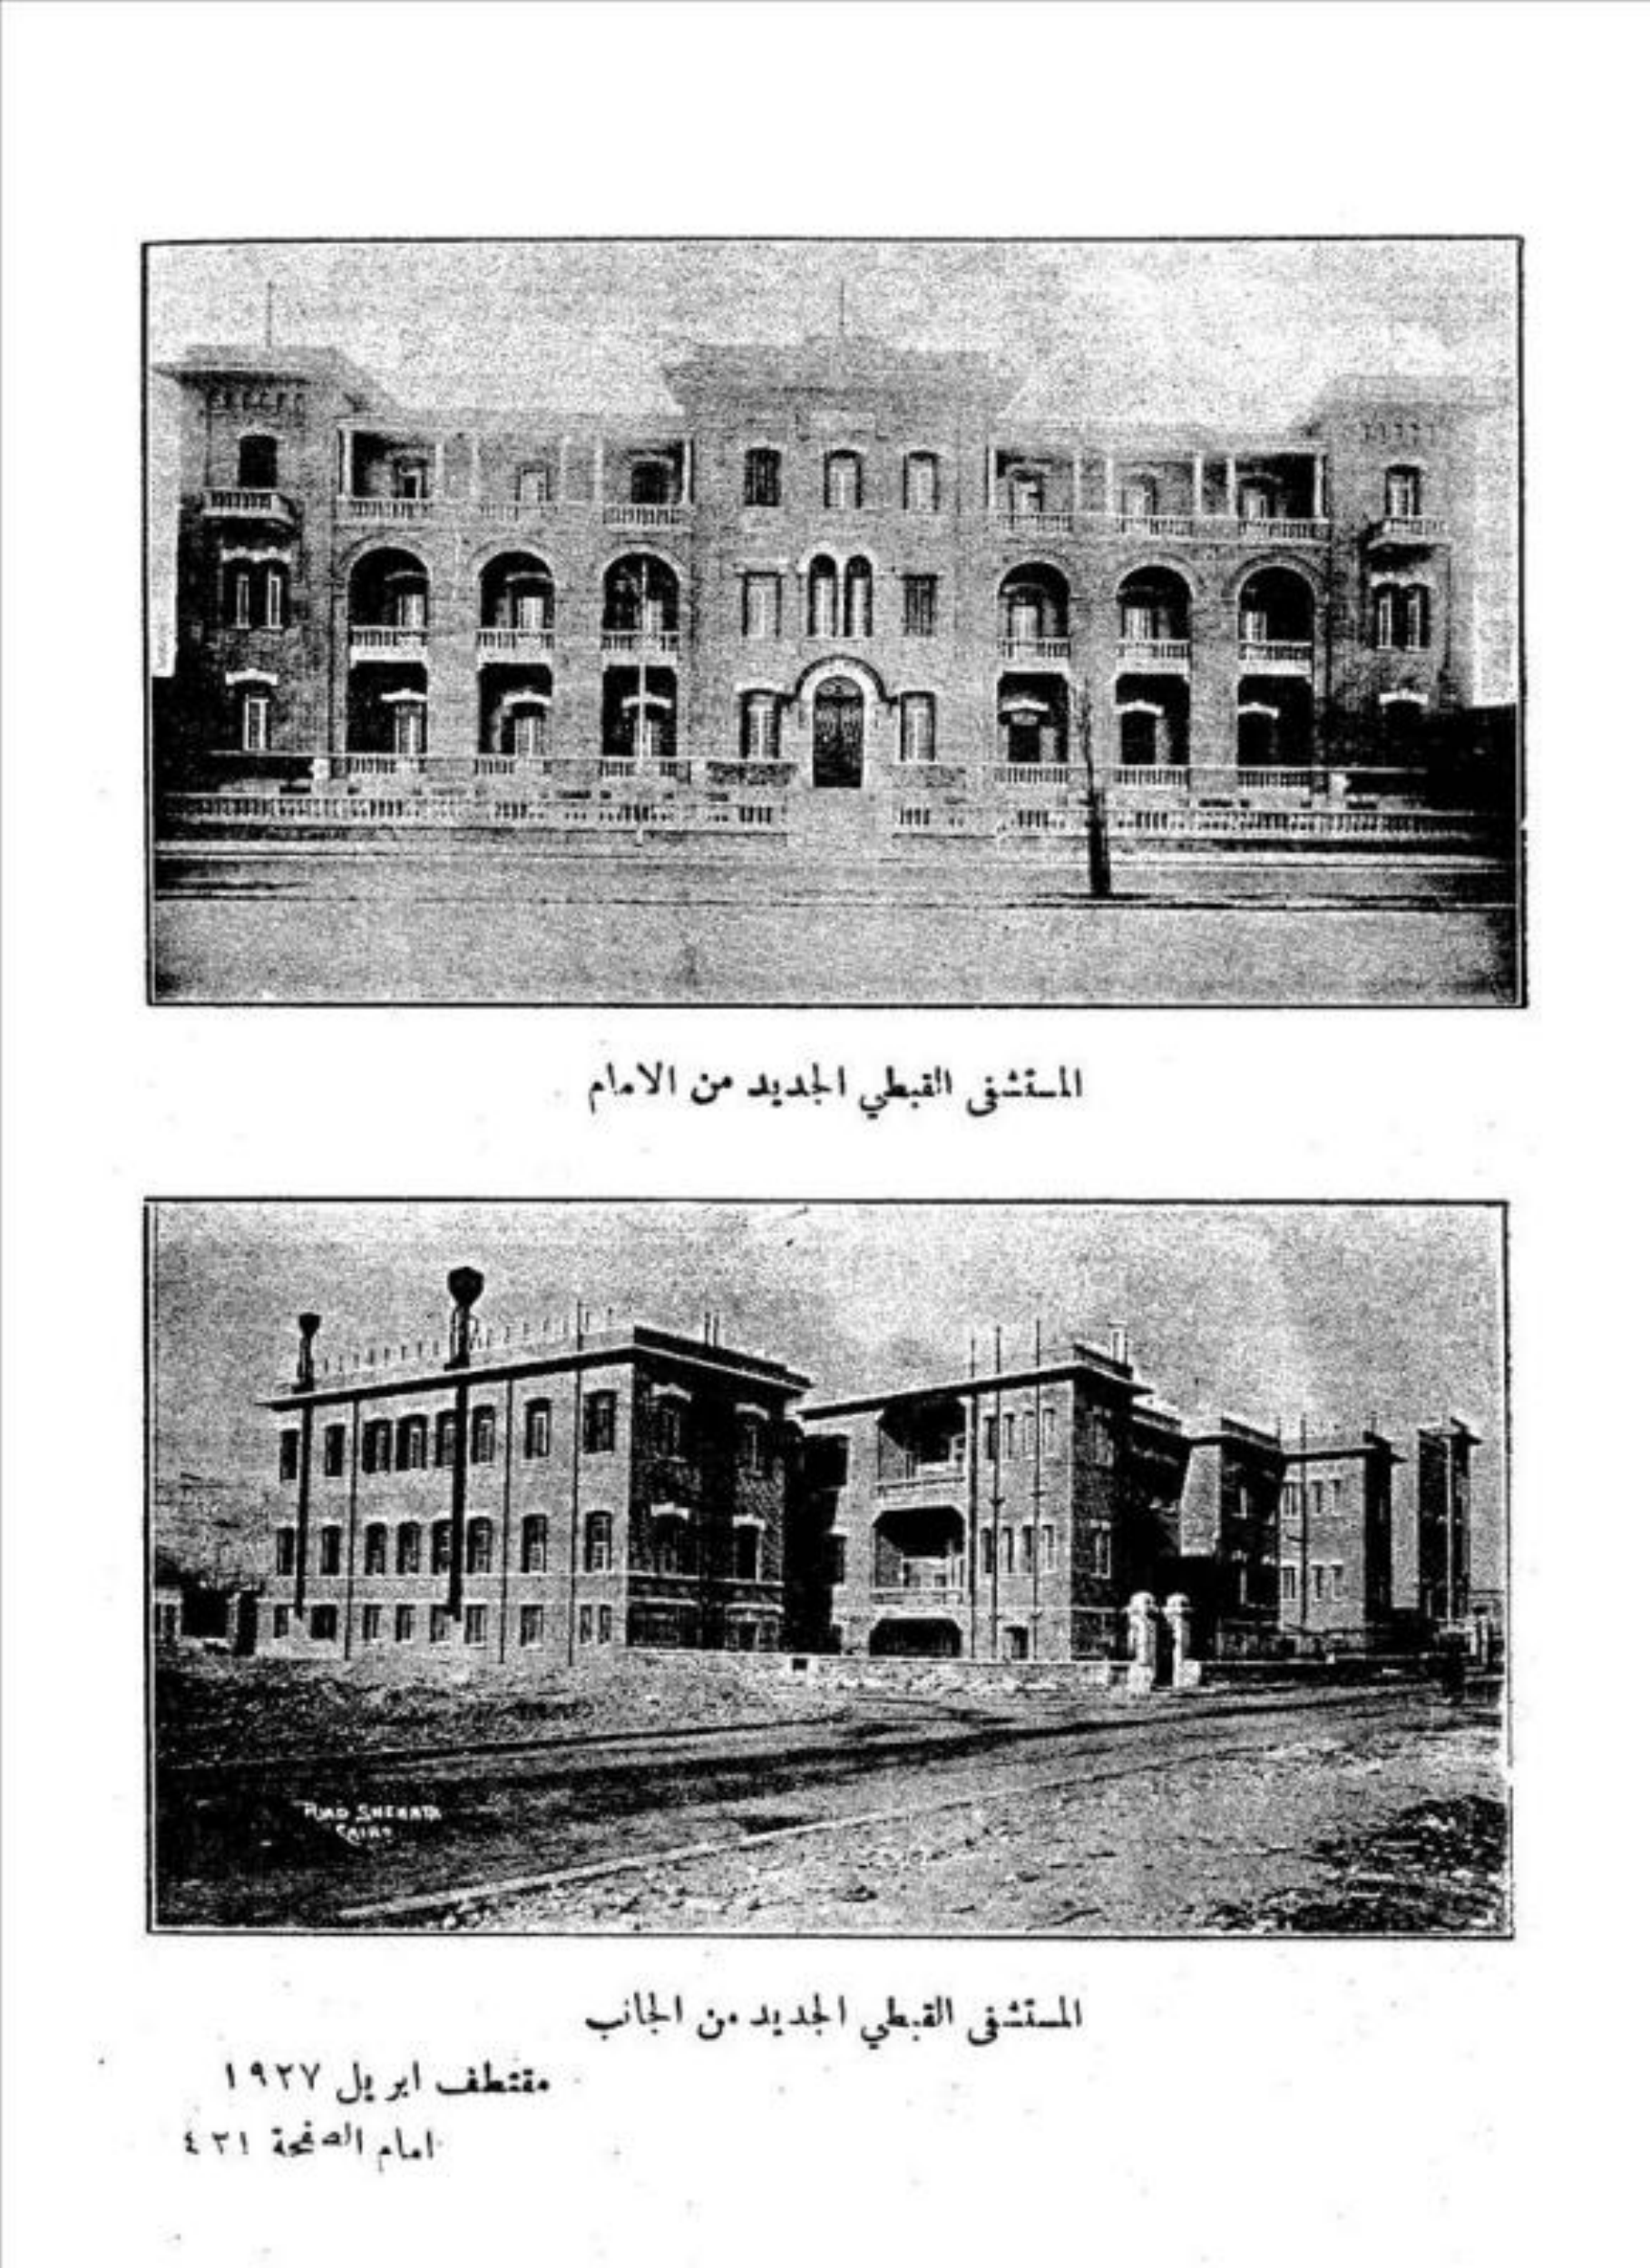 المستشفى القبطي الجديد من الامام
RIAD SHEHATA
CAIRO
المستشفى القبطي الجديد من الجانب
مقتطف ابريل ١٩٢٧
امام الصفحة ٤٢١